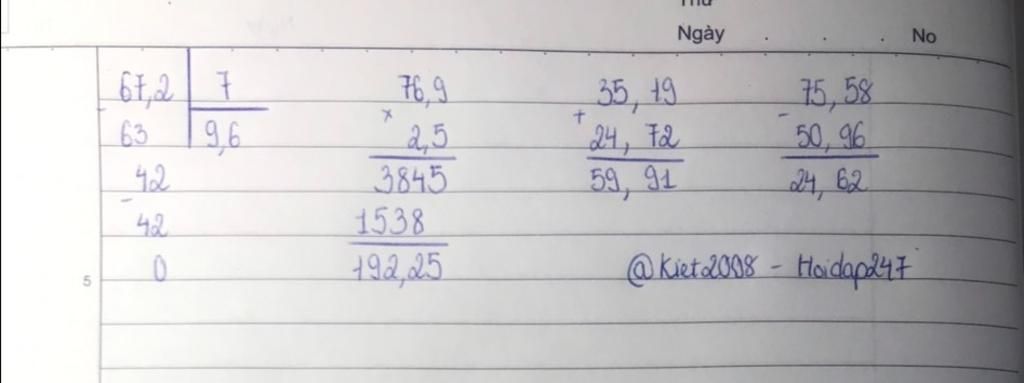 Thứ
Ngày . . . No
67,2 7 76,9 35,19 75,58
- x + -
63 9,6 2,5 24,72 50,96
42 3845 59,91 24,62
-
42 1538
0 192,25 @Kiet2008 - Hoidap247
5